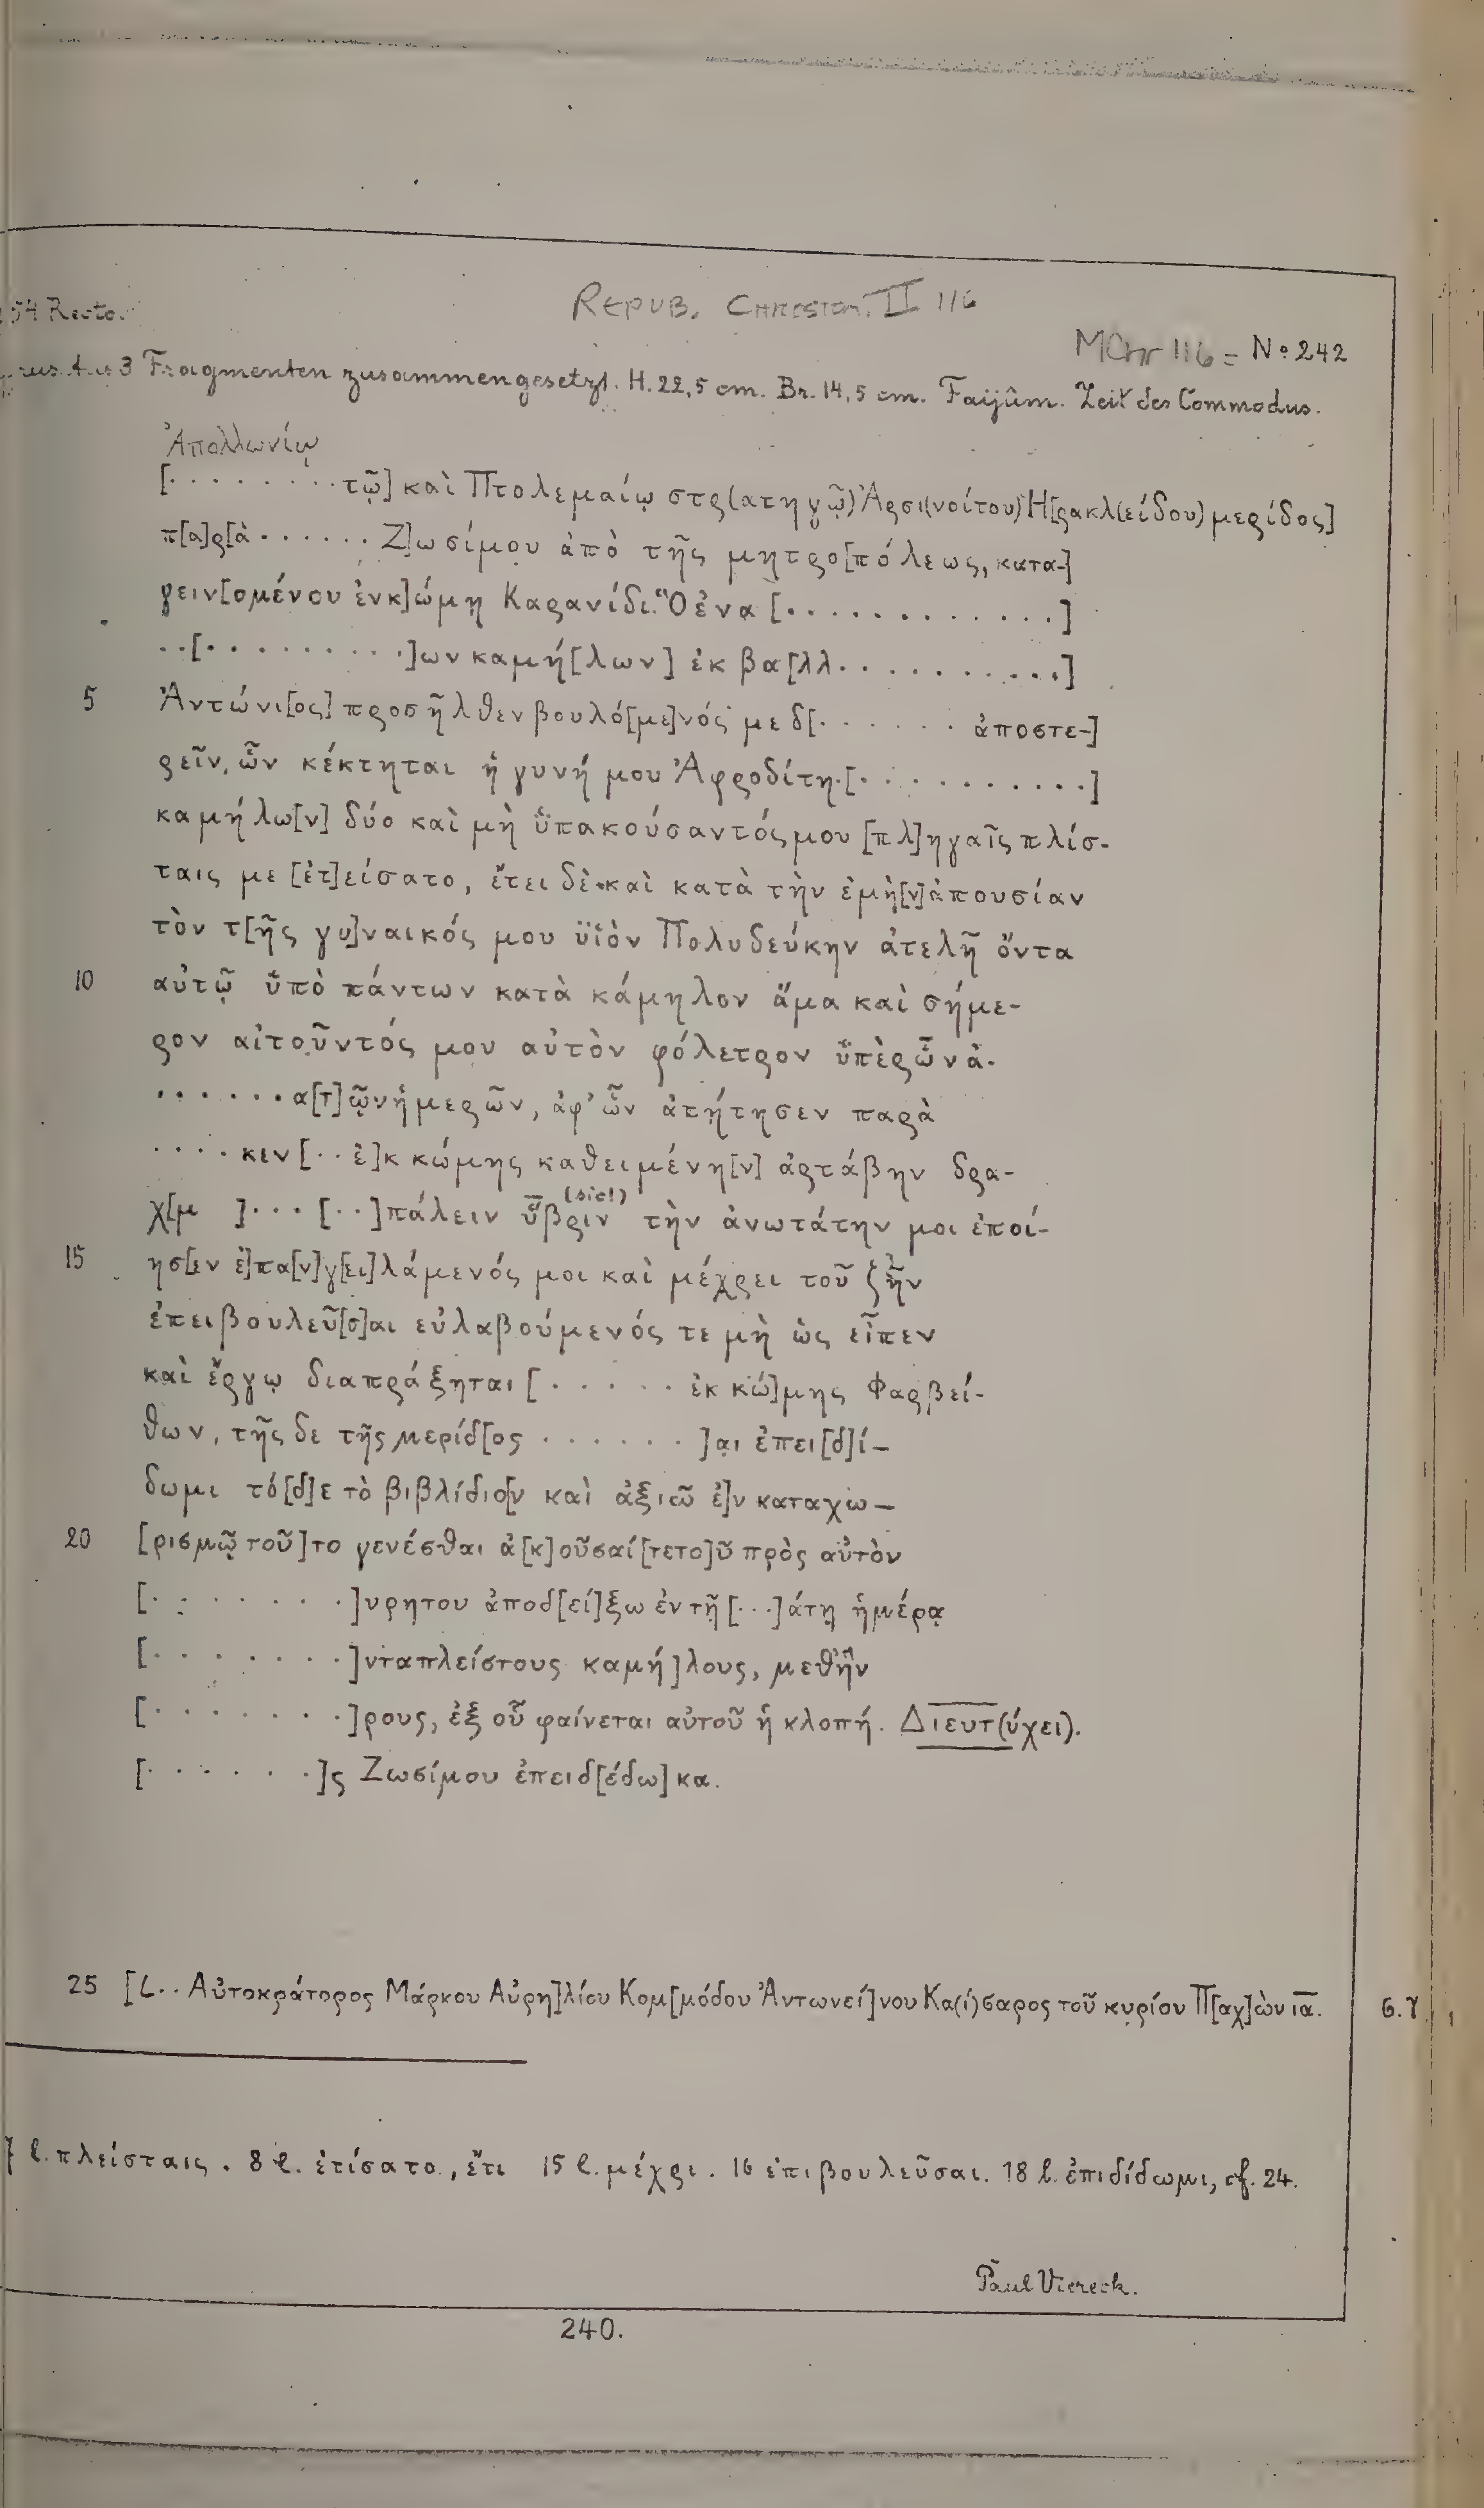 54 Recto.
REPUB. CHRESTOM. II 116
MChr 116 = No 242
aus 3 Fragmenten zusammengesetzt. H. 22,5 cm. Br. 14,5 cm. Faijûm. Zeit des Commodus.
Ἀπολλωνίῳ
[· · · · · · · · τῷ] καὶ Πτολεμαίῳ στρ(ατηγῷ) Ἀρσι(νοίτου) Ἡ[ρακλ(είδου) μερίδος]
π[α]ρ[ὰ · · · · · · Ζ]ωσίμου ἀπὸ τῆς μητρο[πόλεως, κατα-]
γειν[ομένου ἐν κ]ώμῃ Καρανίδι. Ὃ ἐνα [· · · · · · · · · · · ·]
· · [· · · · · · · · ·]ων καμή[λων] ἐκ βα[λλ · · · · · · · · · ·]
5 Ἀντώνι[ος] προσῆλθεν βουλό[με]νός με δ[· · · · · · ἀποστε-]
ρεῖν, ὧν κέκτηται ἡ γυνή μου Ἀφροδίτη · [· · · · · · · · · ·]
καμήλω[ν] δύο καὶ μὴ ὑπακούσαντός μου [πλ]ηγαῖς πλίσ-
ταις με [ἐτ]είσατο, ἔτει δὲ καὶ κατὰ τὴν ἐμὴ[ν] ἀπουσίαν
τὸν τ[ῆς γυ]ναικός μου ϋἱὸν Πολυδεύκην ἀτελῆ ὄντα
10 αὐτῷ ὑπὸ πάντων κατὰ κάμηλον ἅμα καὶ σήμε-
ρον αἰτοῦντός μου αὐτὸν φόλετρον ὑπὲρ ὧν ἀ·
· · · · · · α[τ]ῷν ἡμερῶν, ἀφ’ ὧν ἀπῄτησεν παρὰ
· · · · κεν [· · ἐ]κ κώμης καθειμένη[ν] ἀρτάβην δρα-
χ[μ ] · · · [· ·] πάλειν ὕβριν (sic!) τὴν ἀνωτάτην μοι ἐποί-
15 ησ[εν ἐ]πα[ν]γ[ει]λάμενός μοι καὶ μέχρει τοῦ ζῆν
ἐπειβουλεῦ[σ]αι εὐλαβούμενός τε μὴ ὡς εἶπεν
καὶ ἔργῳ διαπράξηται [· · · · · ἐκ κώ]μης Φαρβεί-
θων, τῆς δε τῆς μερίδ[ος · · · · · · ]αι ἐπει[δ]ί–
δωμι τό[δ]ε τὸ βιβλίδιο[ν καὶ ἀξιῶ ἐ]ν καταχω–
20 [ρισμῷ τοῦ]το γενέσθαι ἀ[κ]οῦσαί [τε το]ῦ πρὸς αὐτὸν
[· · · · · · · ·]υρητου ἀποδ[εί]ξω ἐν τῇ [· · ·]άτῃ ἡμέρᾳ
[· · · · · · · ·]ντα πλείστους καμή]λους, μεθ’ ἣν
[· · · · · · · ·]ρους, ἐξ οὗ φαίνεται αὐτοῦ ἡ κλοπή. Διευτ(ύχει).
[· · · · · · ·]ς Ζωσίμου ἐπειδ[έδω]κα.
25 [L · · Αὐτοκράτορος Μάρκου Αὐρη]λίου Κομ[μόδου Ἀντωνεί]νου Κα(ί)σαρος τοῦ κυρίου Π[αχ]ὼν ια.
l. πλείσταις. 8 l. ἐτίσατο, ἔτι 15 l. μέχρι. 16 ἐπιβουλεῦσαι. 18 l. ἐπιδίδωμι, cf. 24.
Paul Viereck.
240.